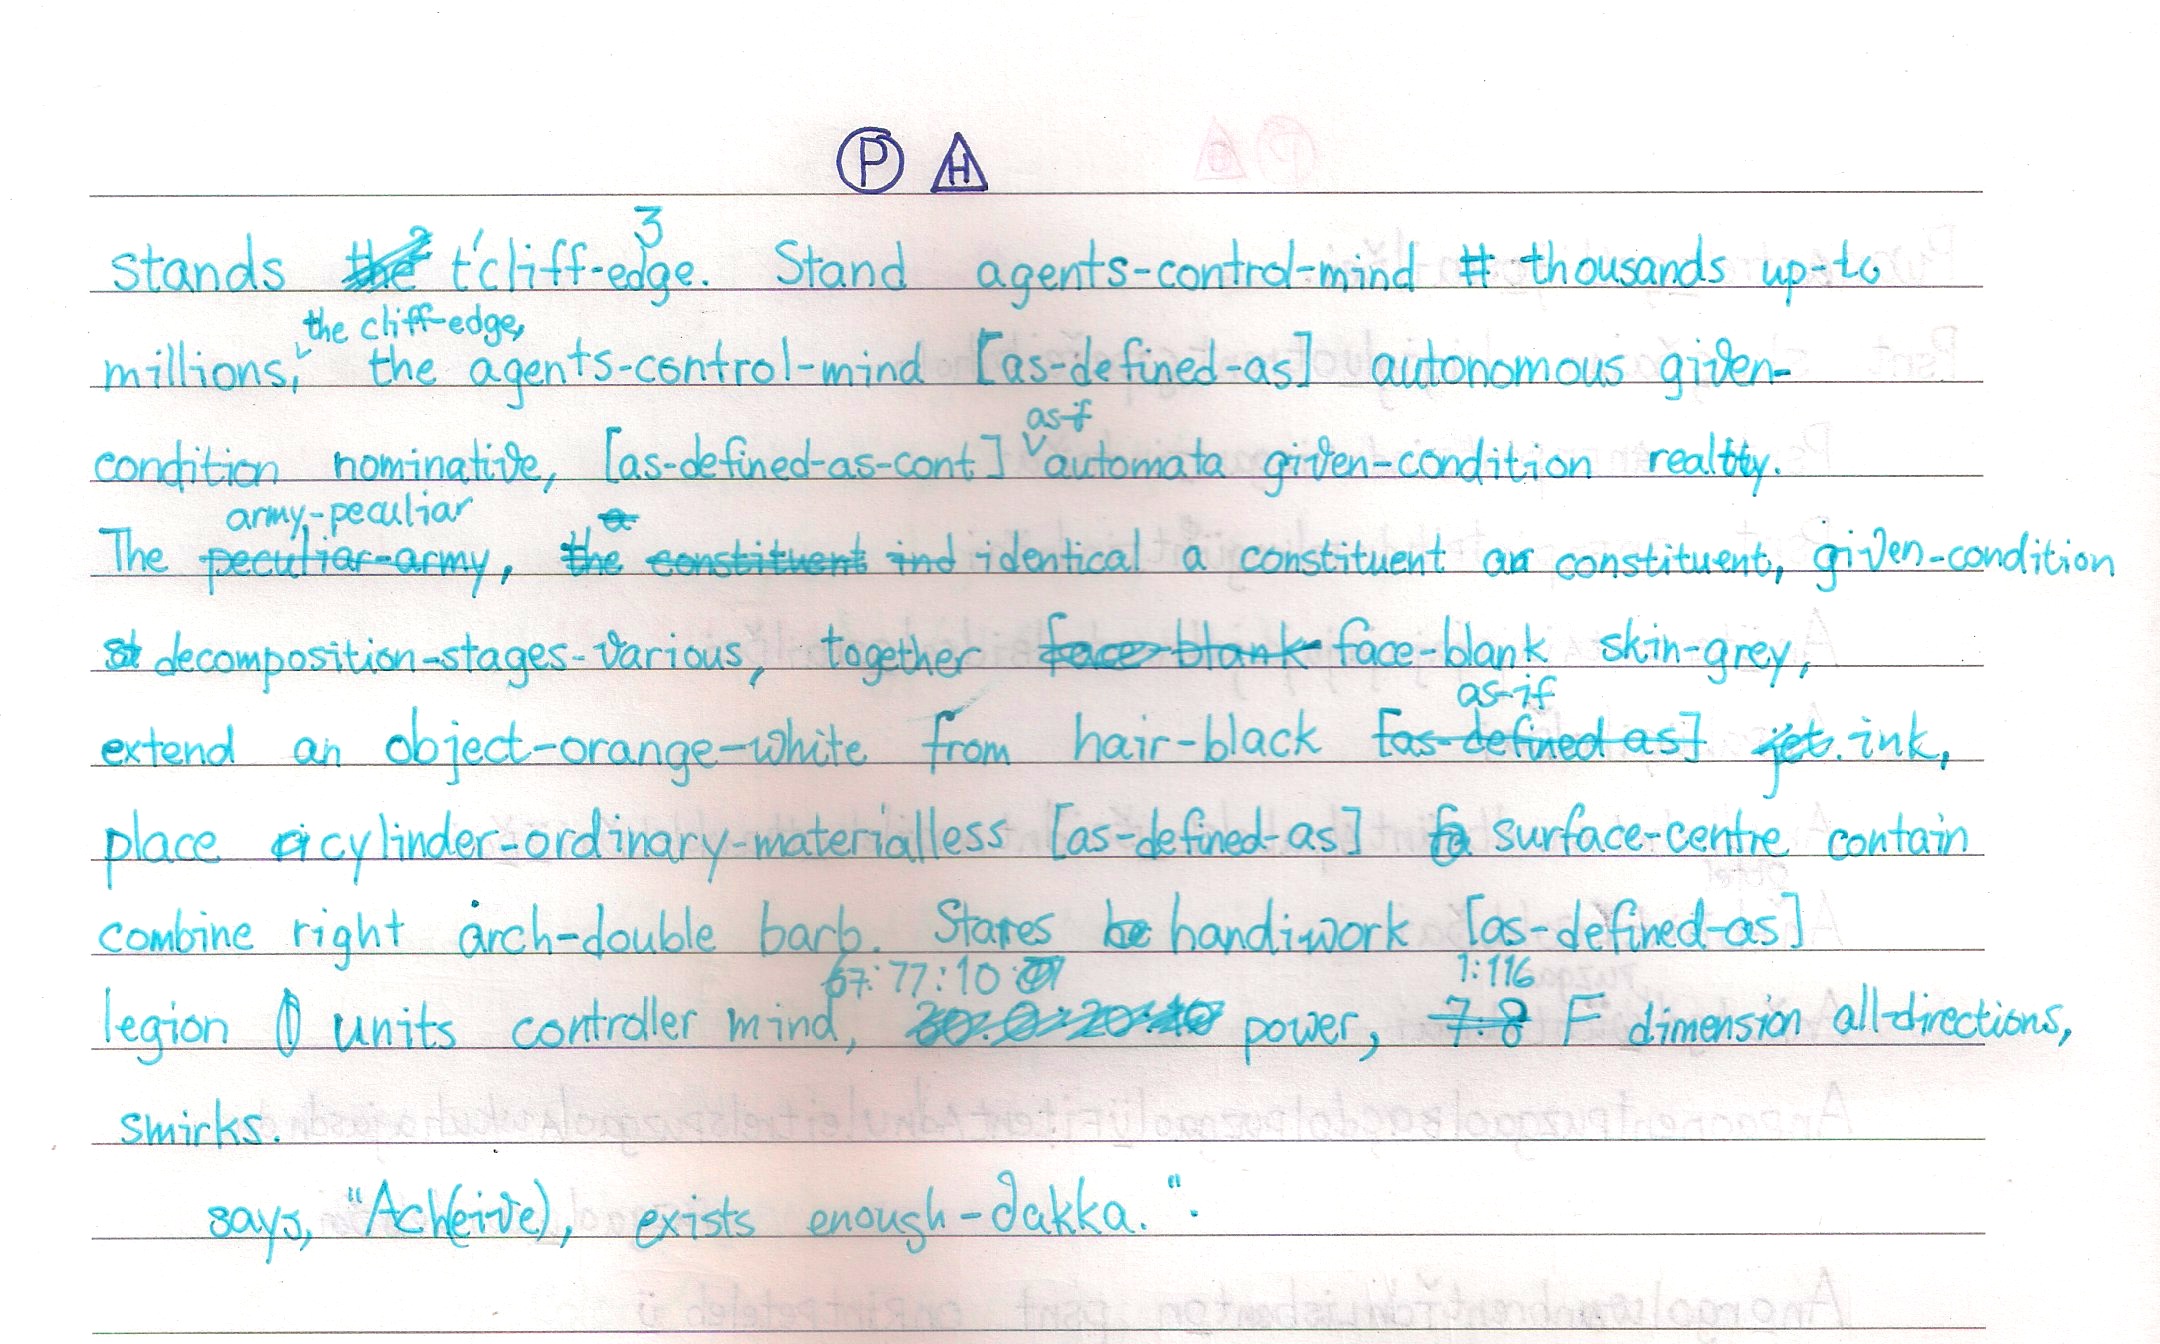 P H
3
stands t'cliff-edge. Stand agents-control-mind # thousands up-to
the cliff-edge,
millions, the agents-control-mind [as-defined-as] autonomous given-
as-if
condition nominative, [as-defined-as-cont.] automata given-condition reality.
army-peculiar
The peculiar-army, the constituent ind identical a constituent a constituent, given-condition
decomposition-stages-various, together face-blank face-blank skin-grey,
as-if
extend an object-orange-white from hair-black [as-defined-as] jet ink,
place cylinder-ordinary-materialless [as-defined-as] surface-centre contain
combine right arch-double barb. Stares be handiwork [as-defined-as]
67:77:10 1:116
legion units controller mind, power, 7:8 F dimension all-directions,
smirks.
says, "Ach(eive), exists enough-dakka.".